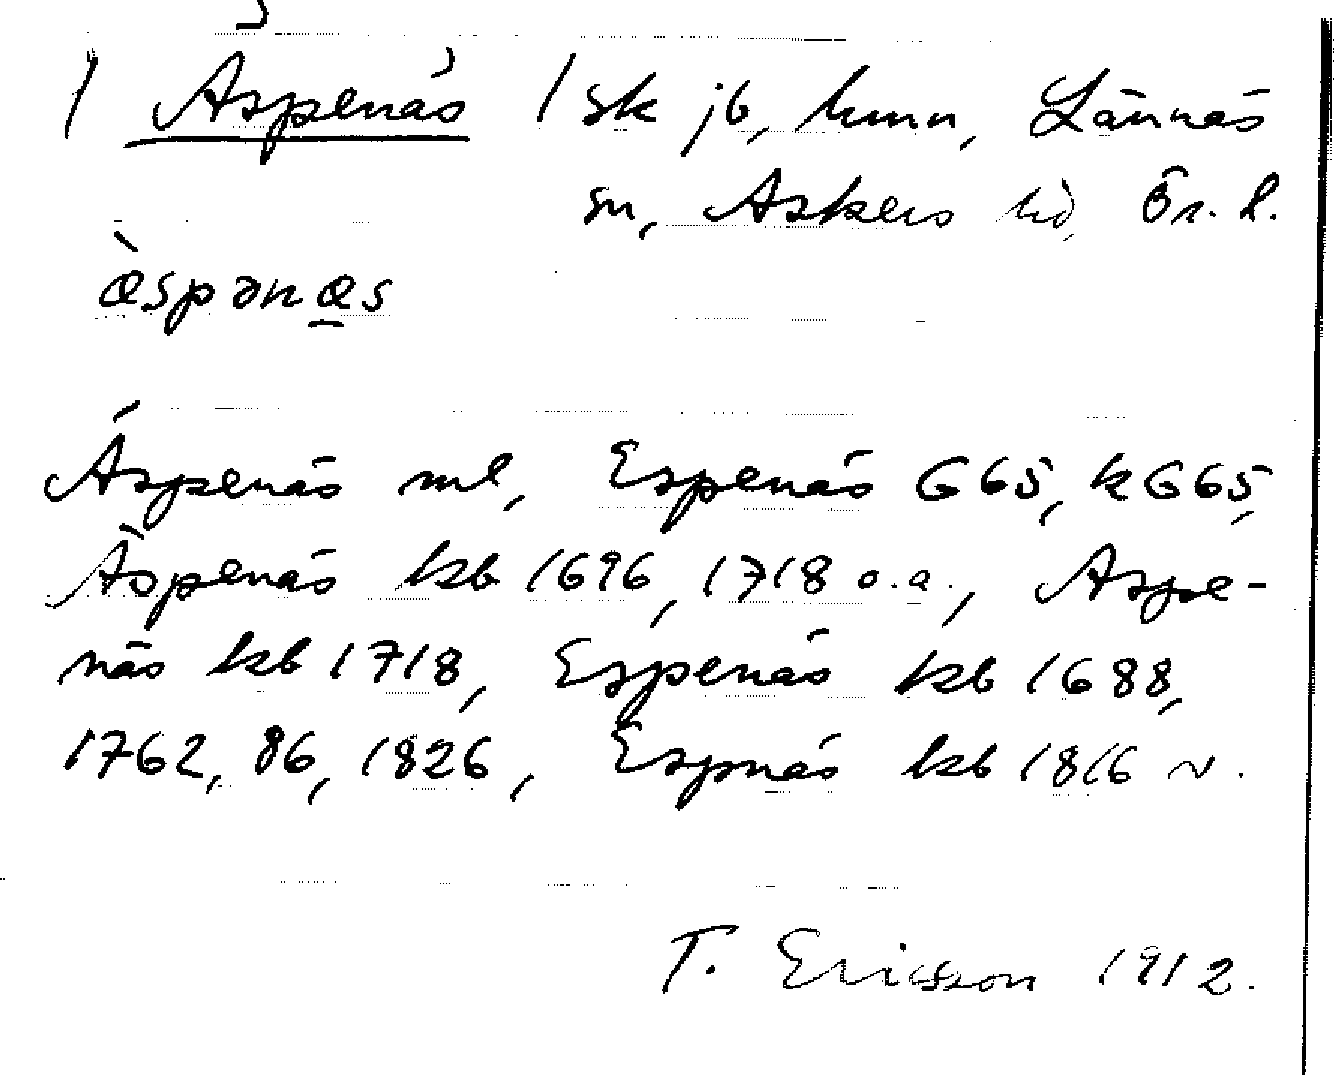 / Äspenäs / sk jb, kmn, Lännäs
sn, Askers hd, Ör. l.
æ̀spənæs
Äspenäs ml, Espenäs G65, kG65,
Äspenäs kb 1696, 1718 o.a., Aspe-
näs kb 1718, Espenäs kb 1688,
1762, 86, 1826, Espnäs kb 1816
T. Ericsson 1912.